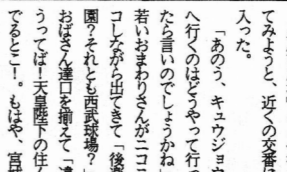 てみようと、近くの交番に
入った。
「あのう、キュウジョウ
へ行くのはどうやって行っ
たら言いのでしょうかね」
若いおまわりさんがニコニ
コしながら出てきて「後楽
園?それとも西武球場?」
おばさん達口を揃えて「違
うってば!天皇陛下の住ん
でるとこ!。もはや、宮城